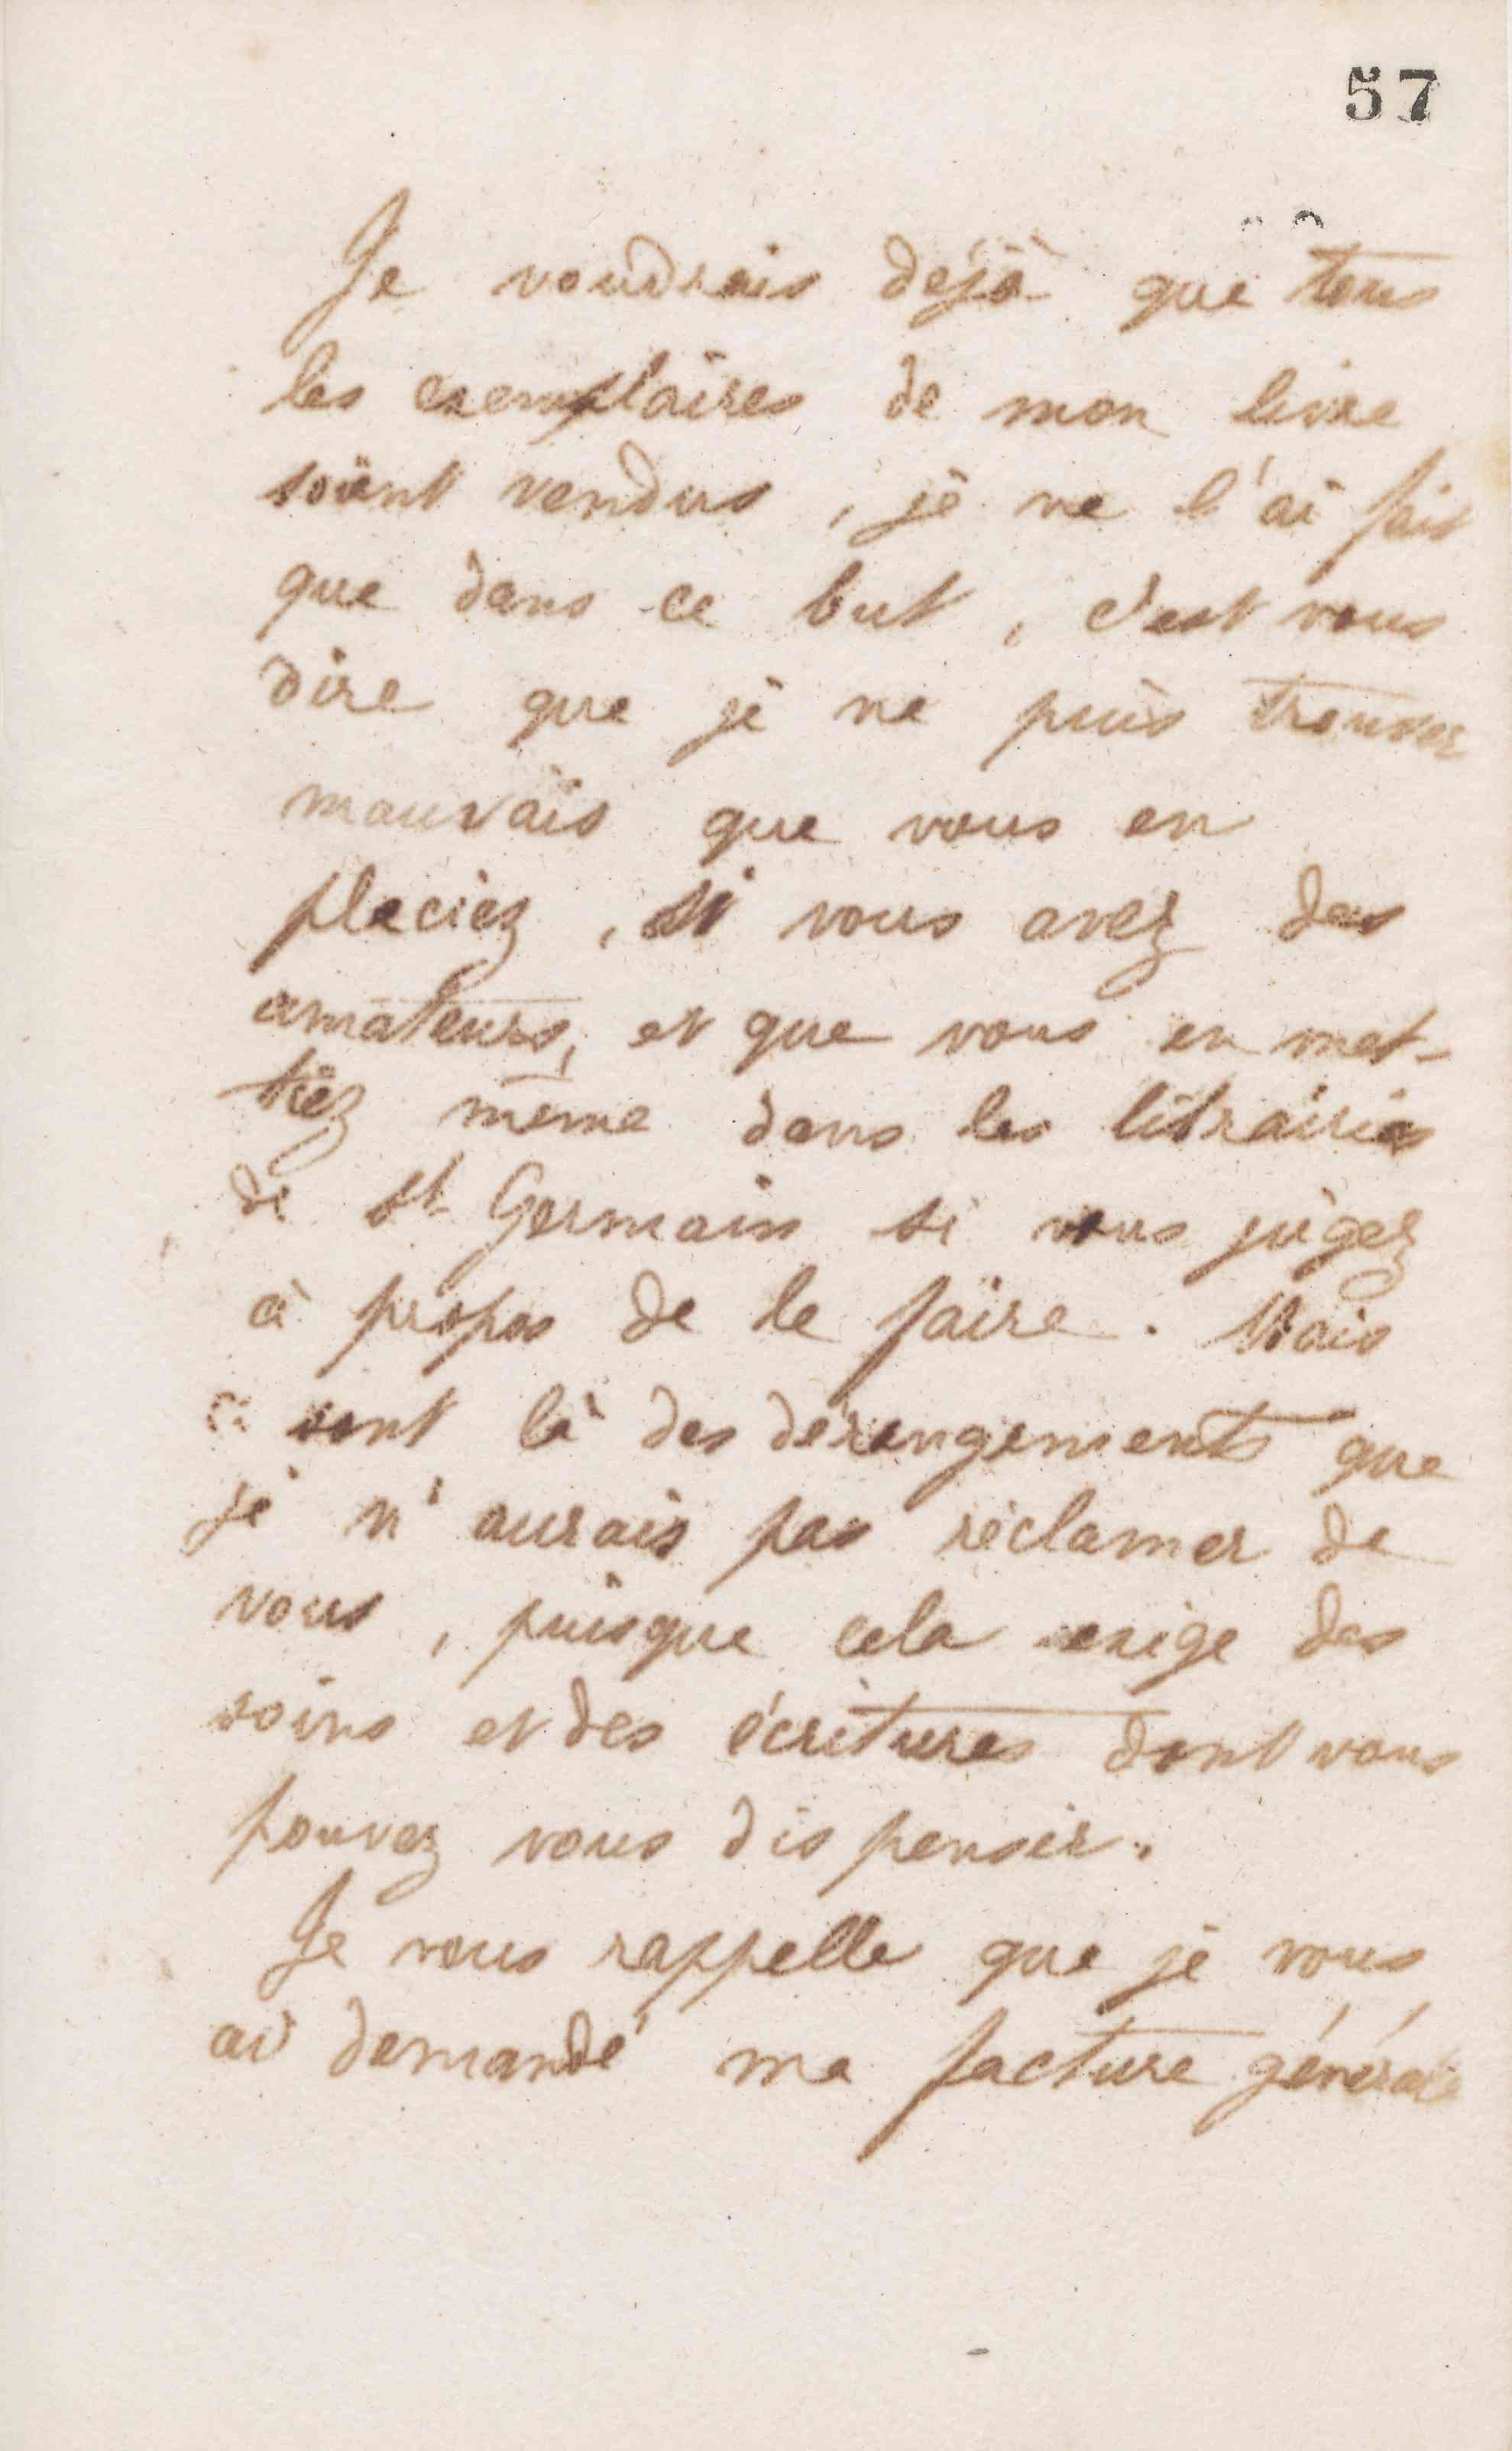 57
Je voudrais déjà que tous
les exemplaires de mon livre
soient vendus, je ne l'ai fait
que dans ce but, c'est vous
dire que je ne puis trouver
mauvais que vous en
placiez, si vous avez des
amateurs, et que vous en met-
tiez même dans les librairies
de St Germain si vous jugez
à propos de le faire. Mais
ce sont là des dérangements que
je n'aurais pas réclamer de
vous, puisque cela exige des
soins et des écritures dont vous
pouvez vous dispenser.
Je vous rappelle que je vous
ai demandé ma facture générale